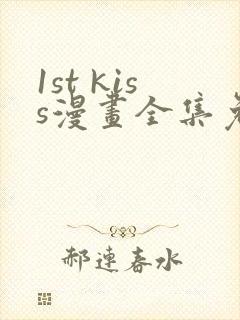 1st kis
s漫畫全集免
郝連春水